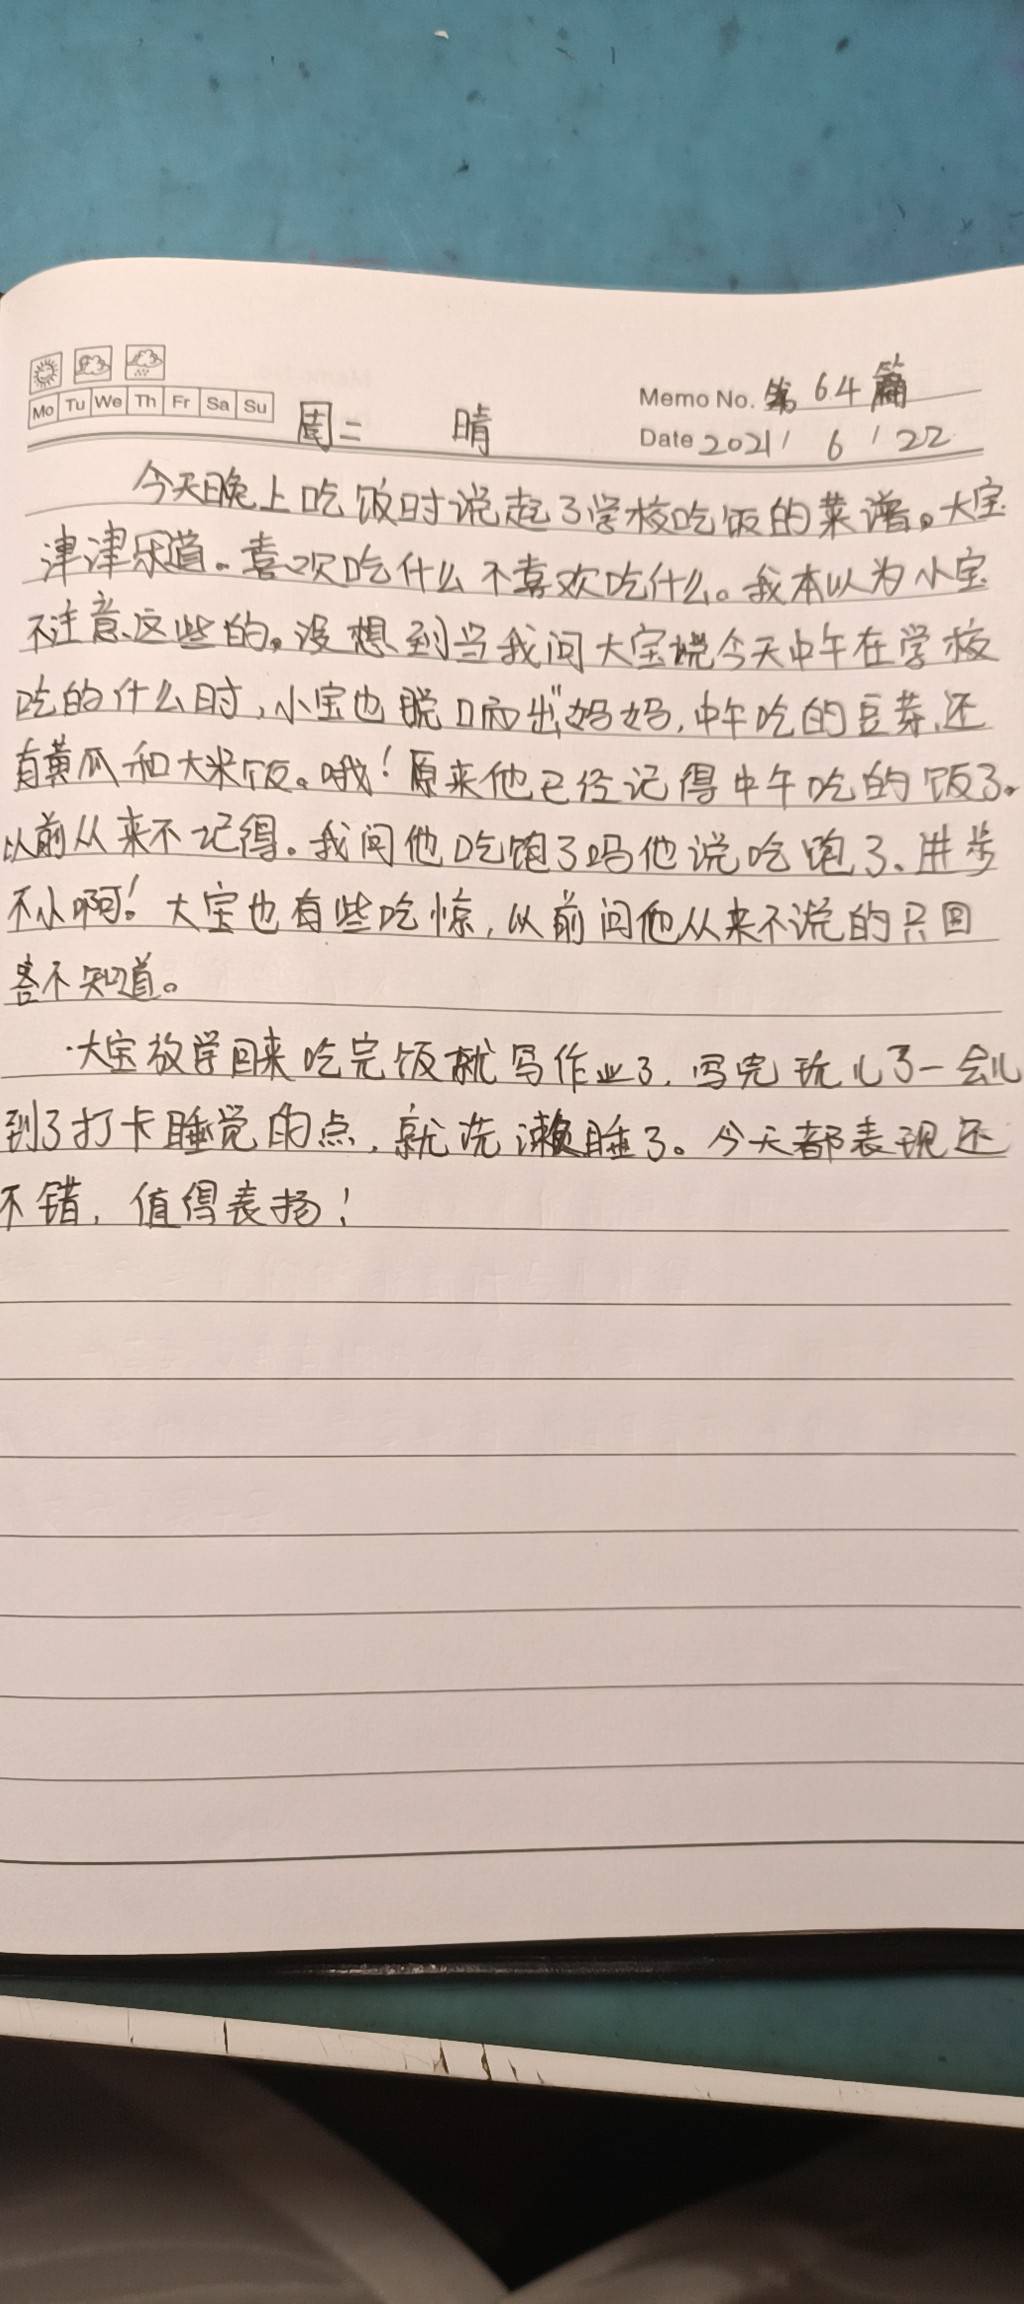 Memo No. 第64篇
Mo Tu We Th Fr Sa Su 周二 晴 Date 2021/6/22
今天晚上吃饭时说起了学校吃饭的菜谱。大宝
津津乐道。喜欢吃什么不喜欢吃什么。我本以为小宝
不注意这些的。没想到当我问大宝说今天中午在学校
吃的什么时,小宝也脱口而出"妈妈,中午吃的豆芽,还
有黄瓜和大米饭。哦!原来他已经记得中午吃的饭了。
以前从来不记得。我问他吃饱了吗他说吃饱了、进步
不小啊!大宝也有些吃惊,以前问他从来不说的只回
答不知道。
大宝放学回来吃完饭就写作业了,写完玩儿了一会儿
到了打卡睡觉的点,就洗漱睡了。今天都表现还
不错,值得表扬!